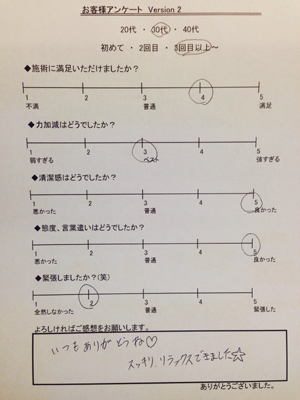 お客様アンケート Version 2
20代 ・ 30代 ・ 40代
初めて ・ 2回目 ・ 3回目以上～
◆施術に満足いただけましたか？
1 2 3 4 5
不満 普通 満足
◆力加減はどうでしたか？
1 2 3 4 5
弱すぎる ベスト 強すぎる
◆清潔感はどうでしたか？
1 2 3 4 5
悪かった 普通 良かった
◆態度、言葉遣いはどうでしたか？
1 2 3 4 5
悪かった 普通 良かった
◆緊張しましたか？(笑)
1 2 3 4 5
全然しなかった 普通 緊張した
よろしければご感想をお願いします。
いつもありがとうね♡
スッキリ、リラックスできました☆
ありがとうございました。